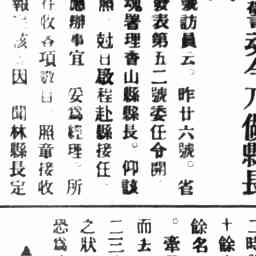 委令乃做縣長
號訪員云。昨廿六號。省
發表第五二號委任令開
魂署理香山縣縣長。仰該
照。尅日啟程赴縣接任、
應辦事宜 妥爲經理。所
收各項數目 照章接收
報 該 因 聞林縣長定
二時
十餘
餘名
。牽
而去
二三
之狀
恐爲